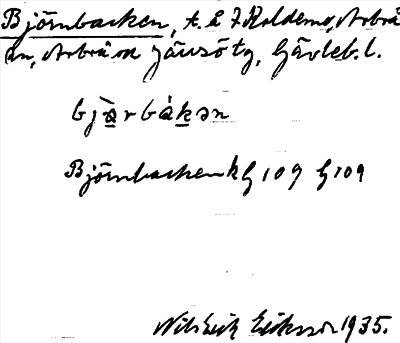 Björnbacken, t. å 7 Koldemo, Arbrå
sn, Arbrå och Järvsö tg, Gävleb. l.
bjàrbákən
Björnbacken kG 109 G 109
Nils Erik Eriksson 1935.